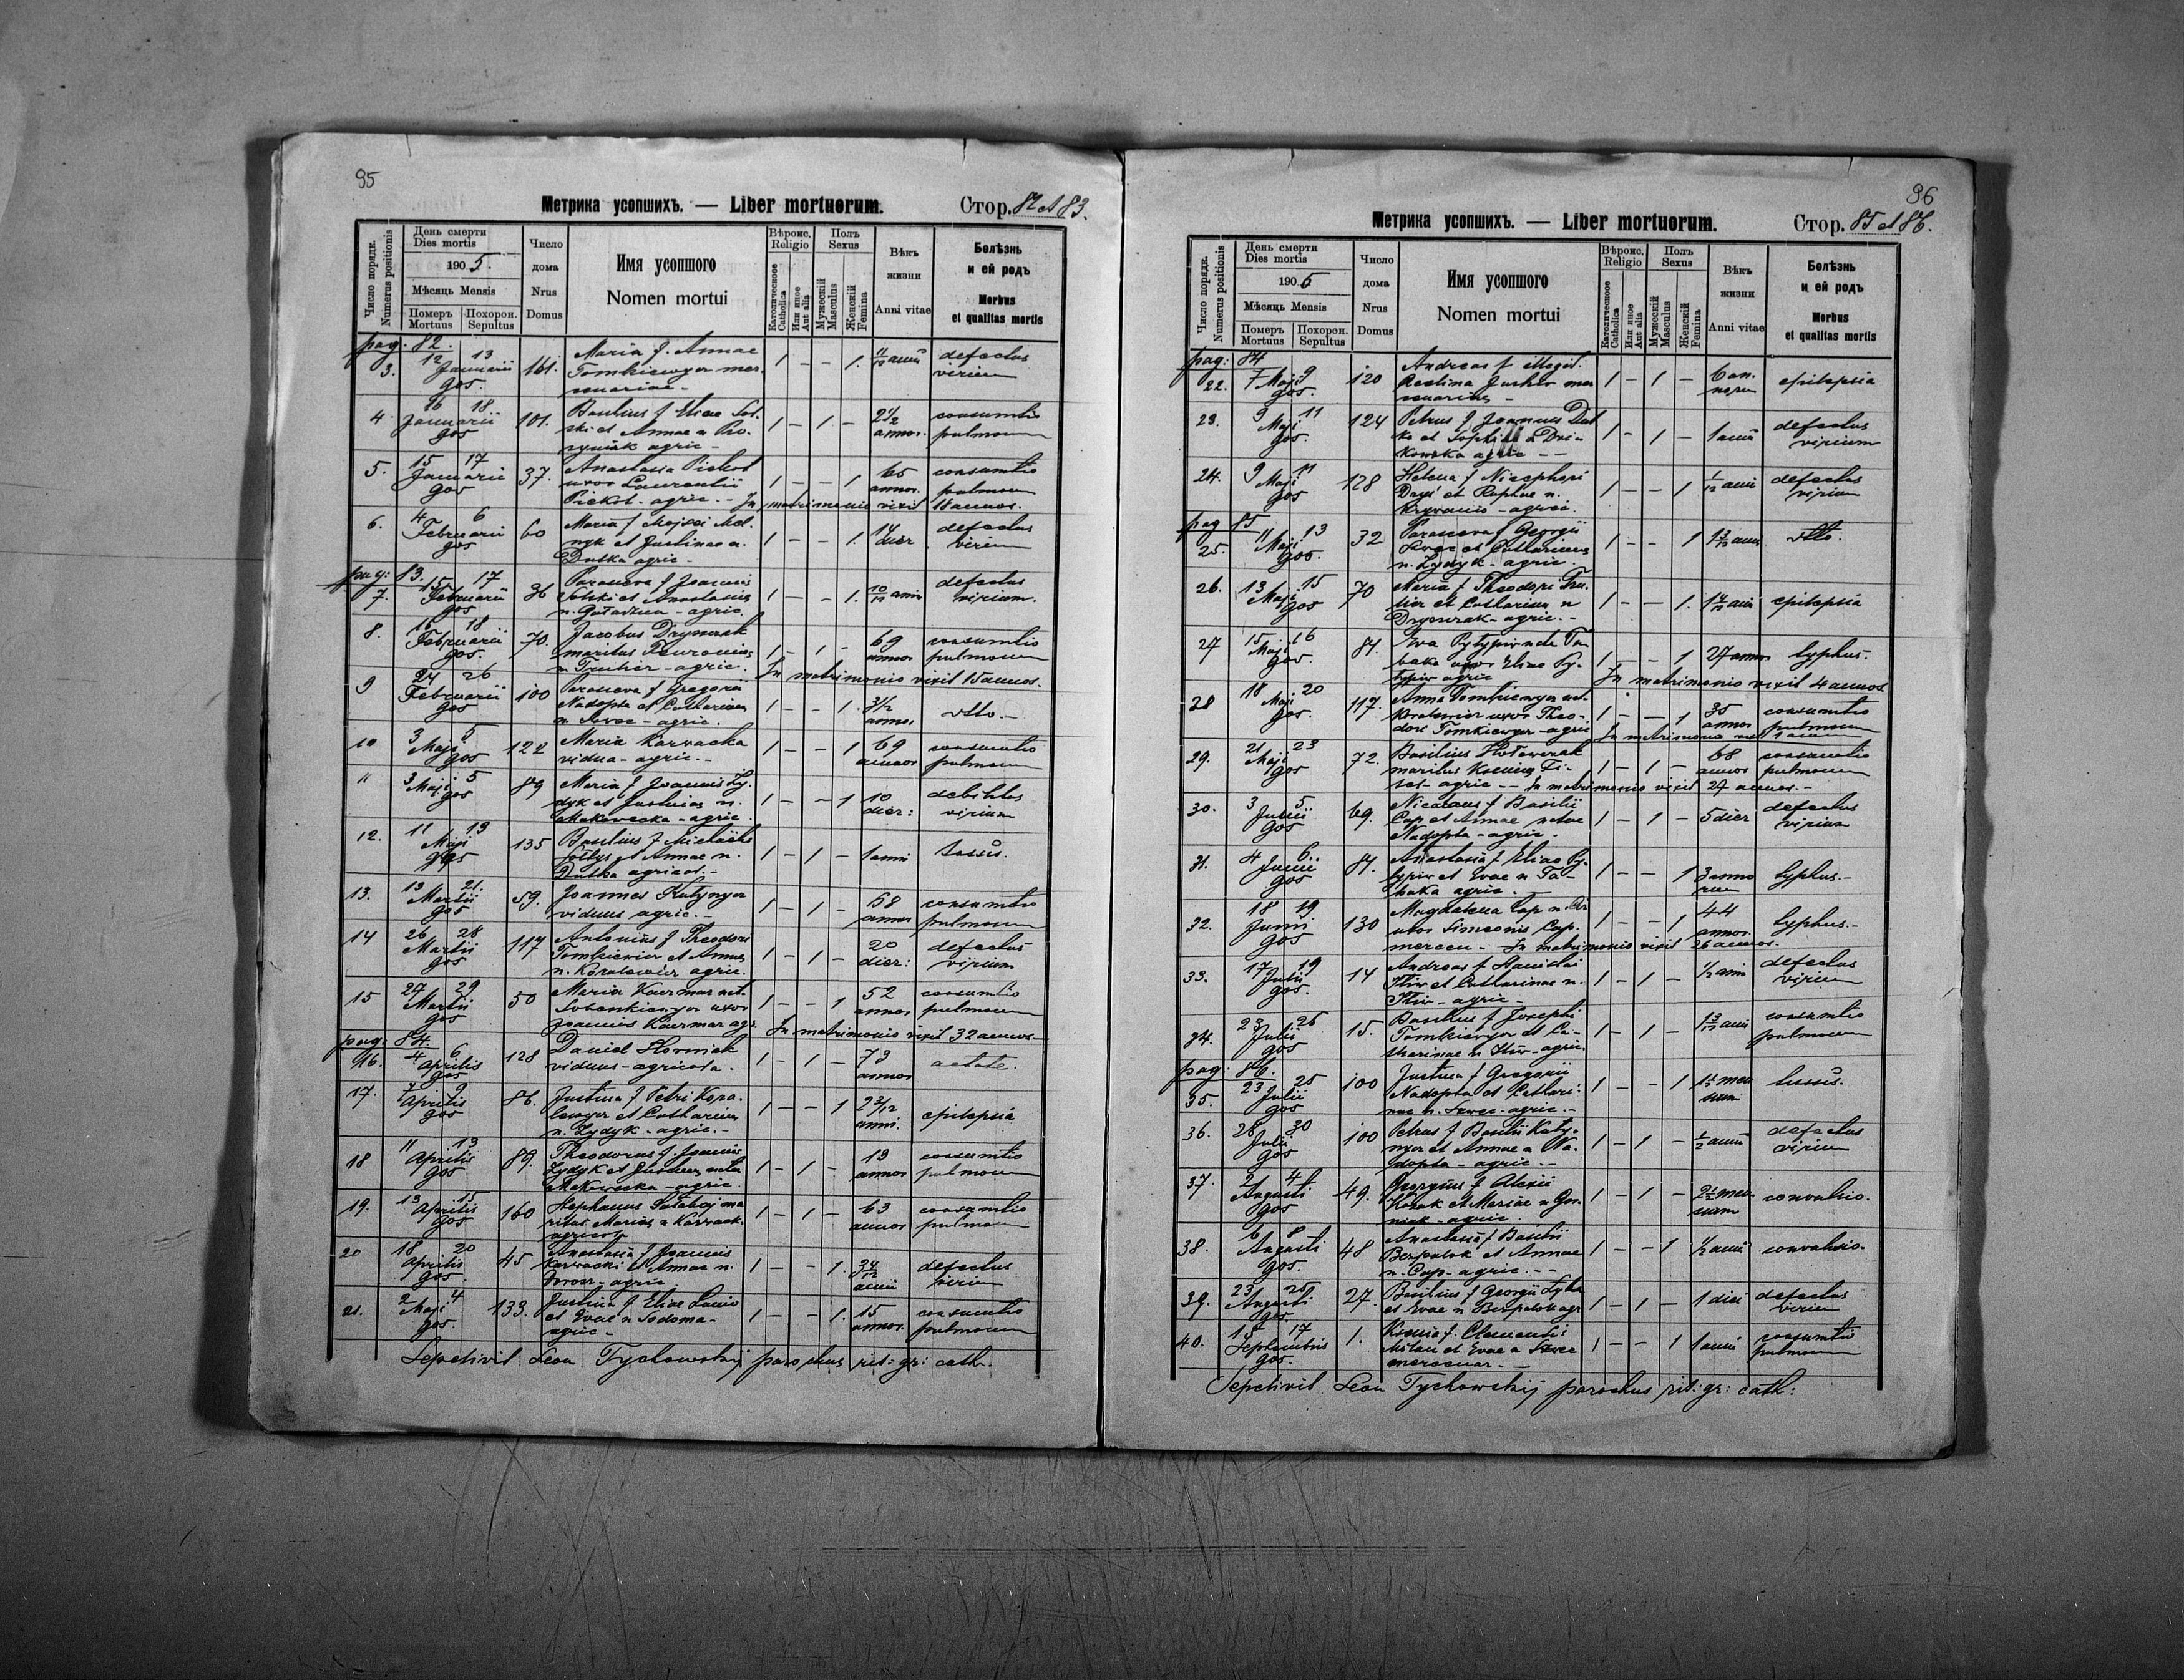 95
Метрика усопшихъ. — Liber mortuorum. Стор. 82 et 83.
Число порядк. Numerus positionis
День смерти
Dies mortis
190 5.
Мѣсяць Mensis
Померъ Mortuus
Похорон. Sepultus
Число дома
Nrus Domus
Имя усопшого
Nomen mortui
Вѣроис. Religio
Католическое Catholica
Или иное Aut alia
Полъ Sexus
Мужескій Masculus
Женскій Femina
Вѣкъ жизни
Anni vitae
Болѣзнь и ей родъ
Morbus et qualitas mortis
pag. 82.
3. 12 13 Januarii 905. 161. Maria f. Annae 1 - - 1. 11/12 anni defectus
Tomkiewycz mer- virium
cenariae -
4. 16 18 Januarii 905 101. Basilius f Eliae Sol- 1 - 1 - 2 1/2 consumtio
ski et Annae n annor. pulmonum
agric -
5. 15 17 Januarii 905 37. Anastasia Pickot 1 - - 1 65 consumtio
uxor Laurentii annor. pulmonum
Pickot - agric. - In matrimonio vixit 18 annos.
6. 4 6 Februarii 905 60 Maria f Mojsei Mel- 1 - - 1. 14 defectus
nyk et Justinae n. dier virium
Dutka agric -
pag: 83.
7. 15 17 Februarii 905 36 Parasceva f Joannis 1 - - 1. 10/12 anni defectus
Solski et Anastasiae virium.
n. - agric.
8. 16 18 Februarii 905. 70. Jacobus Dryszczak 1 - 1 - 69 consumtio
maritus annor pulmonum
n. Truchier - agric. In matrimonio vixit 15 annos.
9 24 26 Februarii 905 100 Parasceva f Gregorii 1 - - 1. 3 1/2 dtto. -
Nadopta et Catharinae annor
n. Szwec - agric.
10 3 5 Maji 905 122 Maria Karwacka 1 - - 1 69 consumtio
vidua - agric. - annor pulmonum
11 3 5 Maji 905 89 Maria f Joannis Ły- 1 - - 1 10 debilitas
dyk et Justinae n. dier: virium
Makowecka - agric.
12. 11 13 Maji 905 135 Basilius f Michaelis 1 - 1 - 1 anni tussis.
Sołtys et Annae n.
Dutka agricol. -
13. 19 21. Martii 905 59. Joannes Kutynycz 1 - 1 - 58 consumtio
viduus agric. - annor pulmonum
14 26 28 Martii 905 117 Antonius f Theodori 1 - 1 - 20 defectus
Tomkiewicz et Annae dier: virium
n. Korolowicz agric.
15 27 29 Martii 905 50 Maria Kaczmar nat. 1 - - 1 52 consumtio
uxor annor pulmonum
Joannis Kaczmar agr. In matrimonio vixit 32 annos -
pag: 84.
16. 4 6 Aprilis 905 128 Daniel Horniak 1 - 1 - 73 aetate.
viduus - agricola. annor
17. 7 9 Aprilis 905 86. Justina f Petri Kopa- 1 - - 1 2 3/12 epilepsia
lewycz et Catharinae anni.
n. Łydyk - agric. -
18 11 13 Aprilis 905 89. Theodorus f. Joannis 1 - 1 - 13 consumtio
Łydyk et Justinae natae annor pulmonum
Makowecka - agric.
19. 13 15 Aprilis 905 160 Stephanus Sałabaj ma- 1 - 1 - 63 consumtio
ritus Mariae n Karwack. annor pulmonum
agricola
20 18 20 Aprilis 905. 45 Anastasia f Joannis 1 - - 1. 3 4/12 defectus
Karwacki et Annae n. anni virium
- agric
21. 2 4 Maji 905. 133. Justina f Eliae 1 - - 1. 15 consumtio
et Evae n Sodoma - annor. pulmonum
agric -
Sepelivit Leon Tychowskij parochus rit: gr: cath.
96
Метрика усопшихъ. — Liber mortuorum. Стор. 85 et 86.
Число порядк. Numerus positionis
День смерти
Dies mortis
190 5
Мѣсяць Mensis
Померъ Mortuus
Похорон. Sepultus
Число дома
Nrus Domus
Имя усопшого
Nomen mortui
Вѣроис. Religio
Католическое Catholica
Или иное Aut alia
Полъ Sexus
Мужескій Masculus
Женскій Femina
Вѣкъ жизни
Anni vitae
Болѣзнь и ей родъ
Morbus et qualitas mortis
pag: 84
22. 7 9 Maji 905. 120 Andreas f illegit. 1 - 1 - 6 an- epilepsia
mer- norum
cenariae -
23. 9 11 Maji 905. 124 Petrus f Joannis Dut- 1 - 1 - 1 anni defectus
ka et Sophiae n virium
agric - -
24. 9 11 Maji 905 128 Helena f Nicephori 1 - - 1 1/12 anni defectus
et n. virium
agric.
pag 85
25. 11 13 Maji 905. 32 Parasceva f Georgii 1 - - 1 1 3/12 anni dtto.
Szwec et Catharinae
n. Łydyk - agric.
26. 13 15 Maji 905 70 Maria f Theodori Tru- 1 - - 1. 1 4/12 anni epilepsia
chier et Catharinae n
Dryszczak - agric. -
27 15 16 Maji 905. 84. Eva Pytypiw nata Ta- 1 - - 1 27 annor typhus.
baka uxor Eliae Py-
typiw agric In matrimonio vixit 4 annos.
28 18 20 Maji 905. 117. Anna Tomkiewycz nat. 1 - - 1 35 consumtio
Korolowicz uxor Theo- annor pulmonum
dori Tomkiewycz - agric In matrimonio vixit
29. 21 23 Maji 905 72. Basilius Hołowczak 1 - 1 - 68 consumtio
maritus Kseniae annor pulmonum
- agric - - In matrimonio vixit 27 annos. -
30. 3 5. Junii 905 69. Nicolaus f Basilii 1 - 1 - 5 dier defectus
Cap et Annae natae virium
Nadopta - agric.
31. 4 6. Junii 905 84. Anastasia f Eliae Py- 1 - - 1 3 anno- typhus. -
typiw et Evae n Ta- rum
baka agric. -
32. 18 19 Junii 905 130 Magdalena Cap n. 1 - - 1 44 typhus. -
uxor Simeonis Cap. annor.
mercen - In matrimonio vixit 26 annos.
33. 17 19 Julii 905. 14 Andreas f Stanislai 1 - 1 - 1/2 anni defectus
Iłiw et Catharinae n. virium
Iłiw - agric -
34. 23 26 Julii 905 15. Basilius f Josephi 1 - 1 - 1 3/12 anni consumtio
Tomkiewycz et Ca- pulmonum
tharinae n Iłiw - agric.
pag: 86.
35. 23 25 Julii 905 100 Justina f Gregorii 1 - - 1 1 1/2 men- tussis.
Nadopta et Cathari- sium
nae n. Szwec - agric. -
36. 28 30 Julii 905 100 Petrus f Basilii Kuty- 1 - 1 - 1/2 anni defectus
nycz et Annae n Na- virium
dopta - agric. -
37. 2 4 Augusti 905 49. Georgius f Alexii 1 - 1 - 2 1/2 men- convulsio.
et Mariae n Hor- sium
niak - agric.
38. 6 8 Augusti 905. 48 Anastasia f Basilii 1 - - 1 1/2 anni convulsio.
Bezpalok et Annae
n. Cap - agric. - -
39. 23 25 Augusti 905 27. Basilius f Georgii 1 - 1 - 1 diei defectus
et Evae n Bezpalok agr virium
40. 15 17 Septembris 905. 1. Ksenia f. Clementis 1 - - 1 1 anni consumtio
et Evae n Szwec pulmonum
mercenar. -
Sepelivit Leon Tychowskij parochus rit: gr: cath: